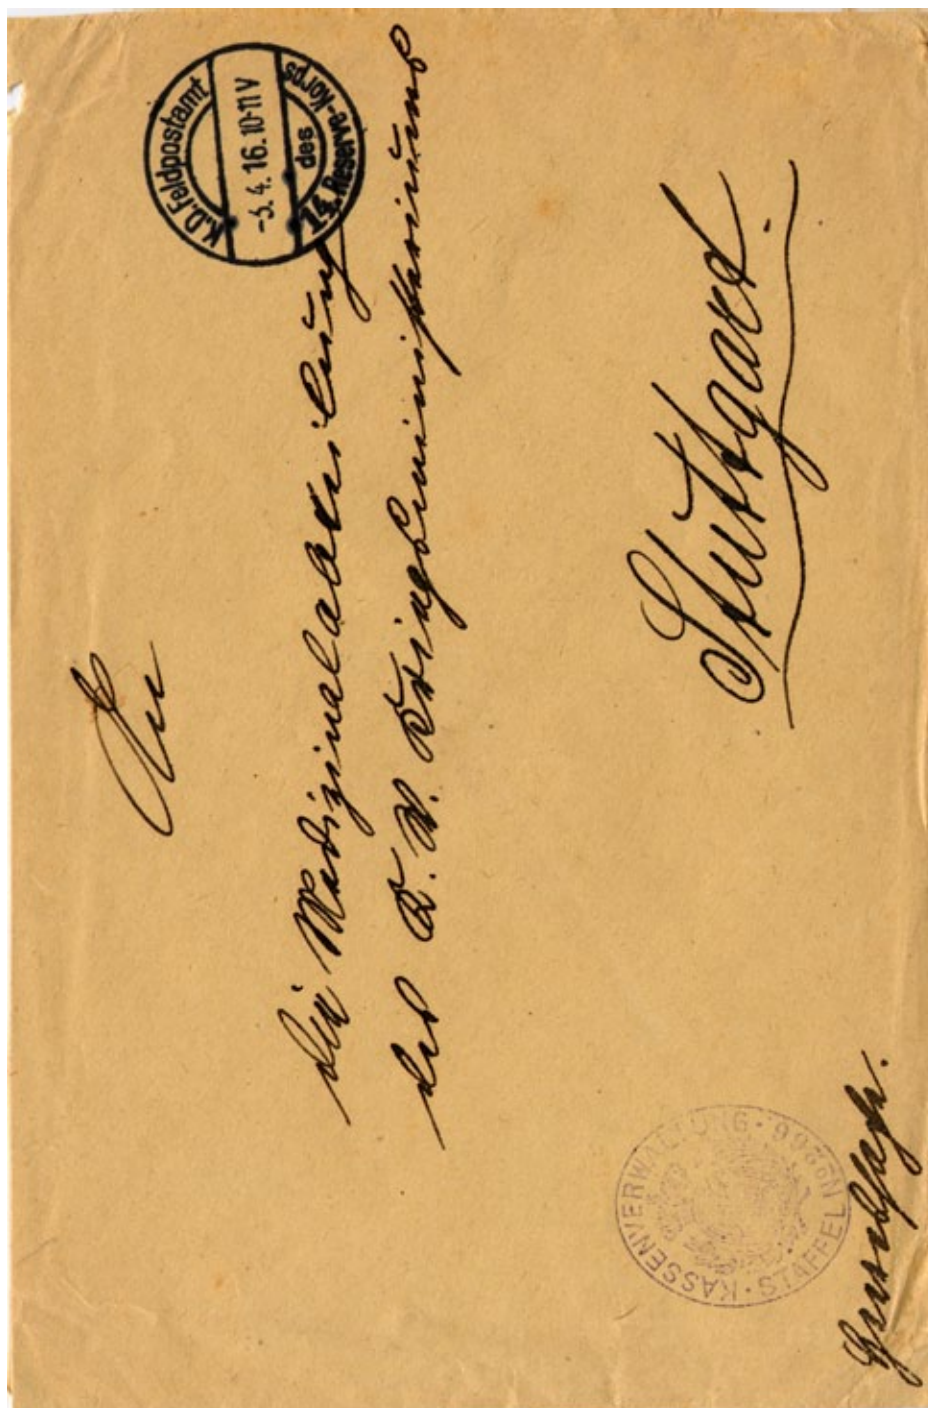 K.D. Feldpostamt
-5.4.16.10-11V
des
14. Reserve-Korps
An
die Medizinalabteilung
des K. W. Kriegsministeriums
Stuttgart.
KASSENVERWALTUNG
STAFFEL
Heeressache.